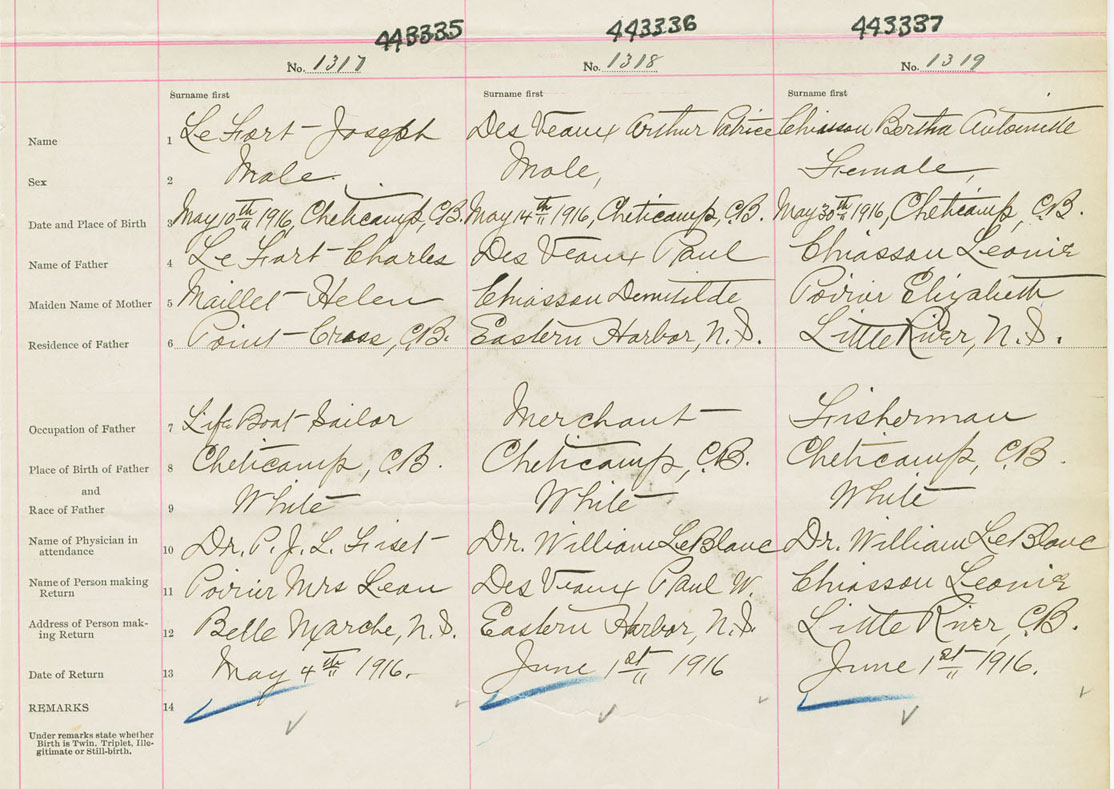 443335 443336 443337
No. 1317 No. 1318 No. 1319
Surname first Surname first Surname first
Name 1 Le Fort Joseph Des Veaux Arthur Patrice Chiasson Bertha Antoinette
Sex 2 Male. Male, Female,
Date and Place of Birth 3 May 10th 1916, Cheticamp, C.B. May 14th 1916, Cheticamp, C.B. May 30th 1916, Cheticamp, C.B.
Name of Father 4 Le Fort Charles Des Veaux Paul Chiasson Leonie
Maiden Name of Mother 5 Maillet Helen Chiasson Demitilde Poirier Elizabeth
Residence of Father 6 Point Cross, C.B. Eastern Harbor, N.S. Little River, N.S.
Occupation of Father 7 Life Boat Sailor Merchant Fisherman
Place of Birth of Father 8 Cheticamp, C.B. Cheticamp, C.B. Cheticamp, C.B.
and
Race of Father 9 White White White
Name of Physician in
attendance 10 Dr. P. J. L. Fiset Dr. William LeBlanc Dr. William LeBlanc
Name of Person making
Return 11 Poirier Mrs Leon Des Veaux Paul W. Chiasson Leonie
Address of Person mak-
ing Return 12 Belle Marche, N.S. Eastern Harbor, N.S. Little River, C.B.
Date of Return 13 May 4th 1916. June 1st 1916 June 1st 1916.
REMARKS 14
Under remarks state whether
Birth is Twin. Triplet, Ille-
gitimate or Still-birth.